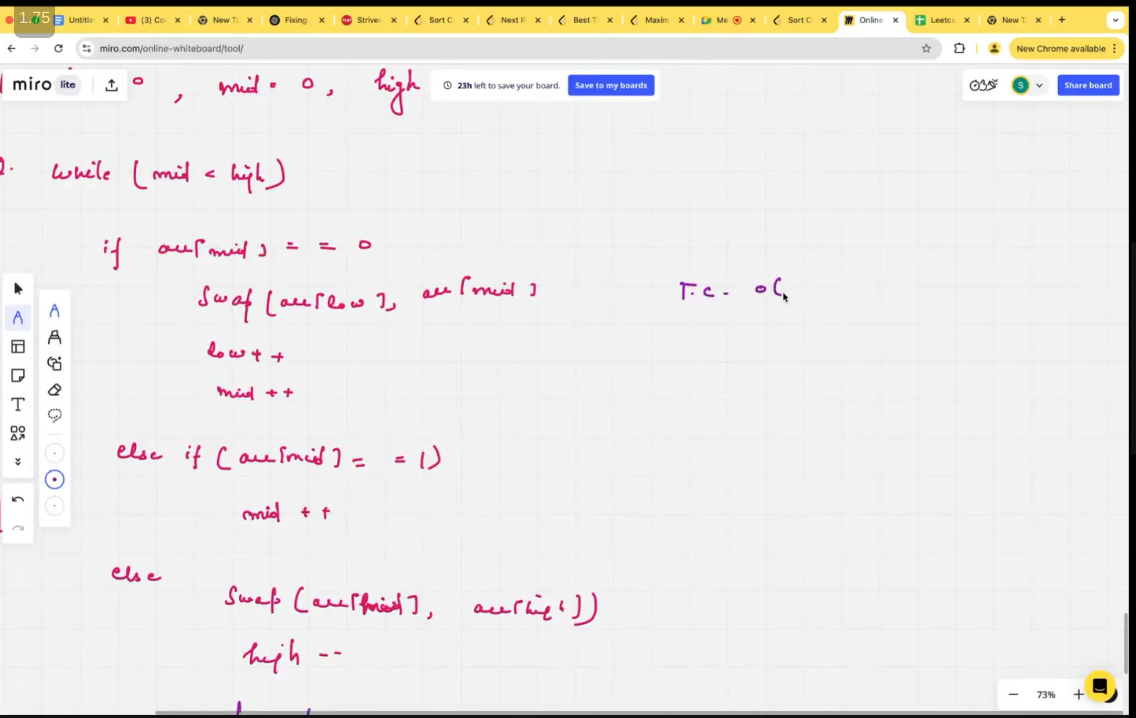 1.75
Untitle
(3) Co
New Ta
Fixing
Striver
Sort C
Next P
Best T
Maxim
Me
Sort C
Online
Leetc
New T
miro.com/online-whiteboard/tool/
New Chrome available
miro lite
23h left to save your board.
Save to my boards
S
Share board
0 , mid = 0, high
2. while (mid < high)
if arr[mid] = = 0
Swap (arr[low], arr[mid]
T.C. - O(
low + +
mid + +
else if (arr[mid] = = 1)
mid + +
else
Swap (arr[mid], arr[high])
high --
73%